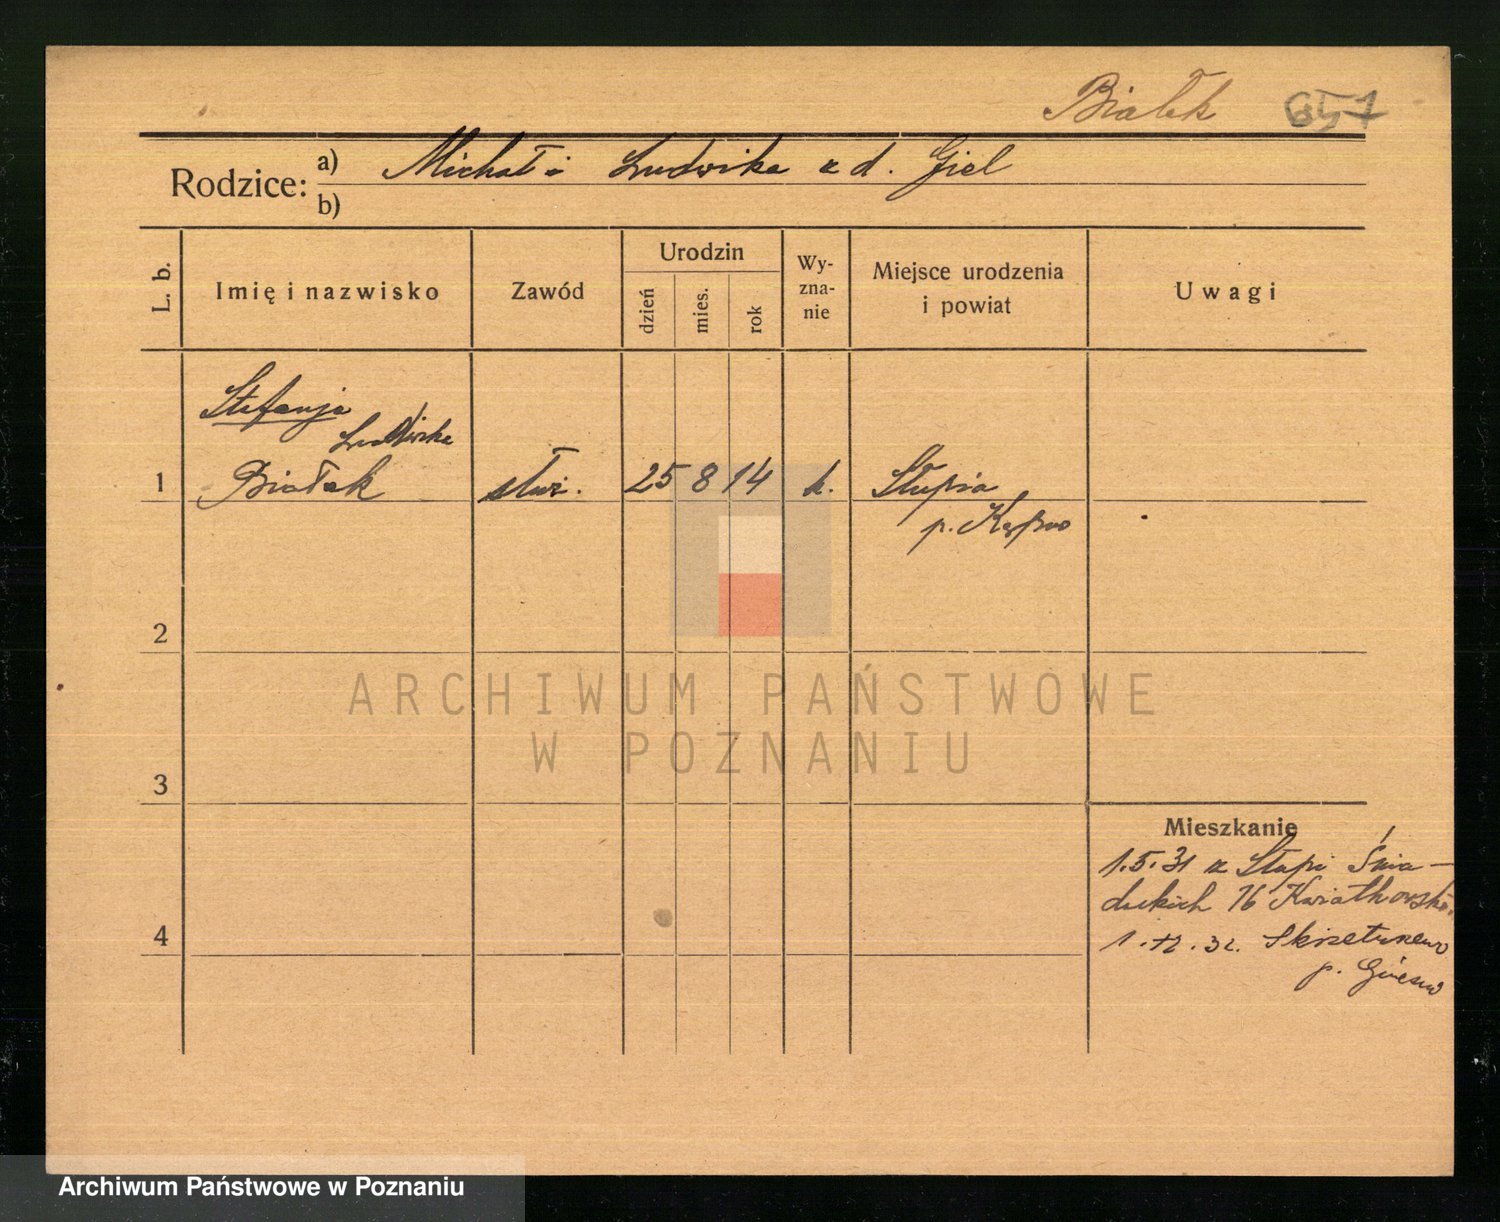 Białek 657
Rodzice: a) Michał i Ludwika z d. Giel
b)
L. b.
Imię i nazwisko
Zawód
Urodzin
dzień
mies.
rok
Wy-
zna-
nie
Miejsce urodzenia
i powiat
Uwagi
Stefanja
Ludwika
1 Białek służ. 25 8 14 k. Słupia
p. Kępno
2
3
4
Mieszkanie
1.5.31 z Słupi Śnia-
deckich 16 Kwiatkowski
1.12.32.
p.
ARCHIWUM PAŃSTWOWE
W POZNANIU
Archiwum Państwowe w Poznaniu